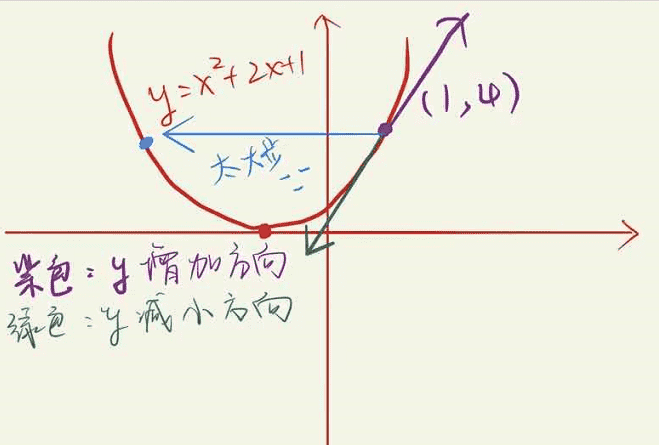 y=x²+2x+1
(1,4)
太大步
紫色：y 增加方向
绿色：y 减小方向